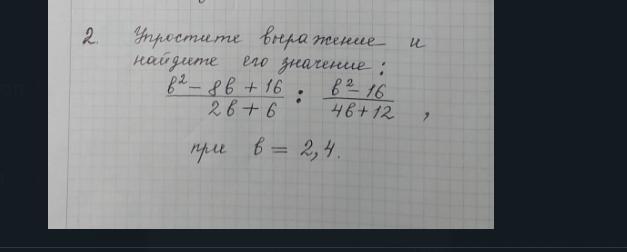 2. Упростите выражение и
найдите его значение:
в² - 8в + 16 / 2в + 6 : в² - 16 / 4в + 12 ,
при в = 2,4.